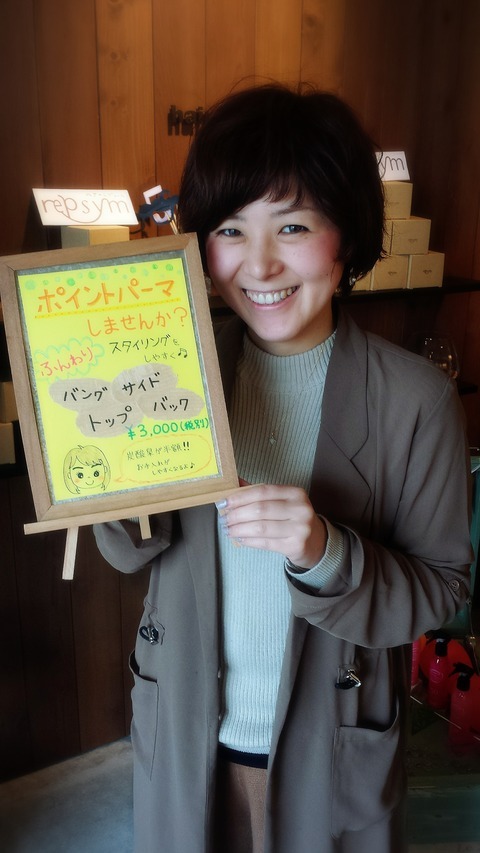 hair
repsym
ym
ポイントパーマ
しませんか？
ふんわり
スタイリングを
しやすく♪
バング サイド
トップ バック
¥3,000(税別)
炭酸泉が半額!!
お手入れが
しやすくなるよ♪